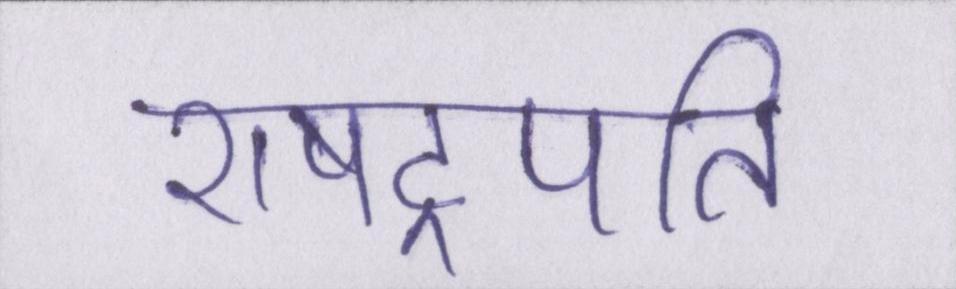 राषट्रपति